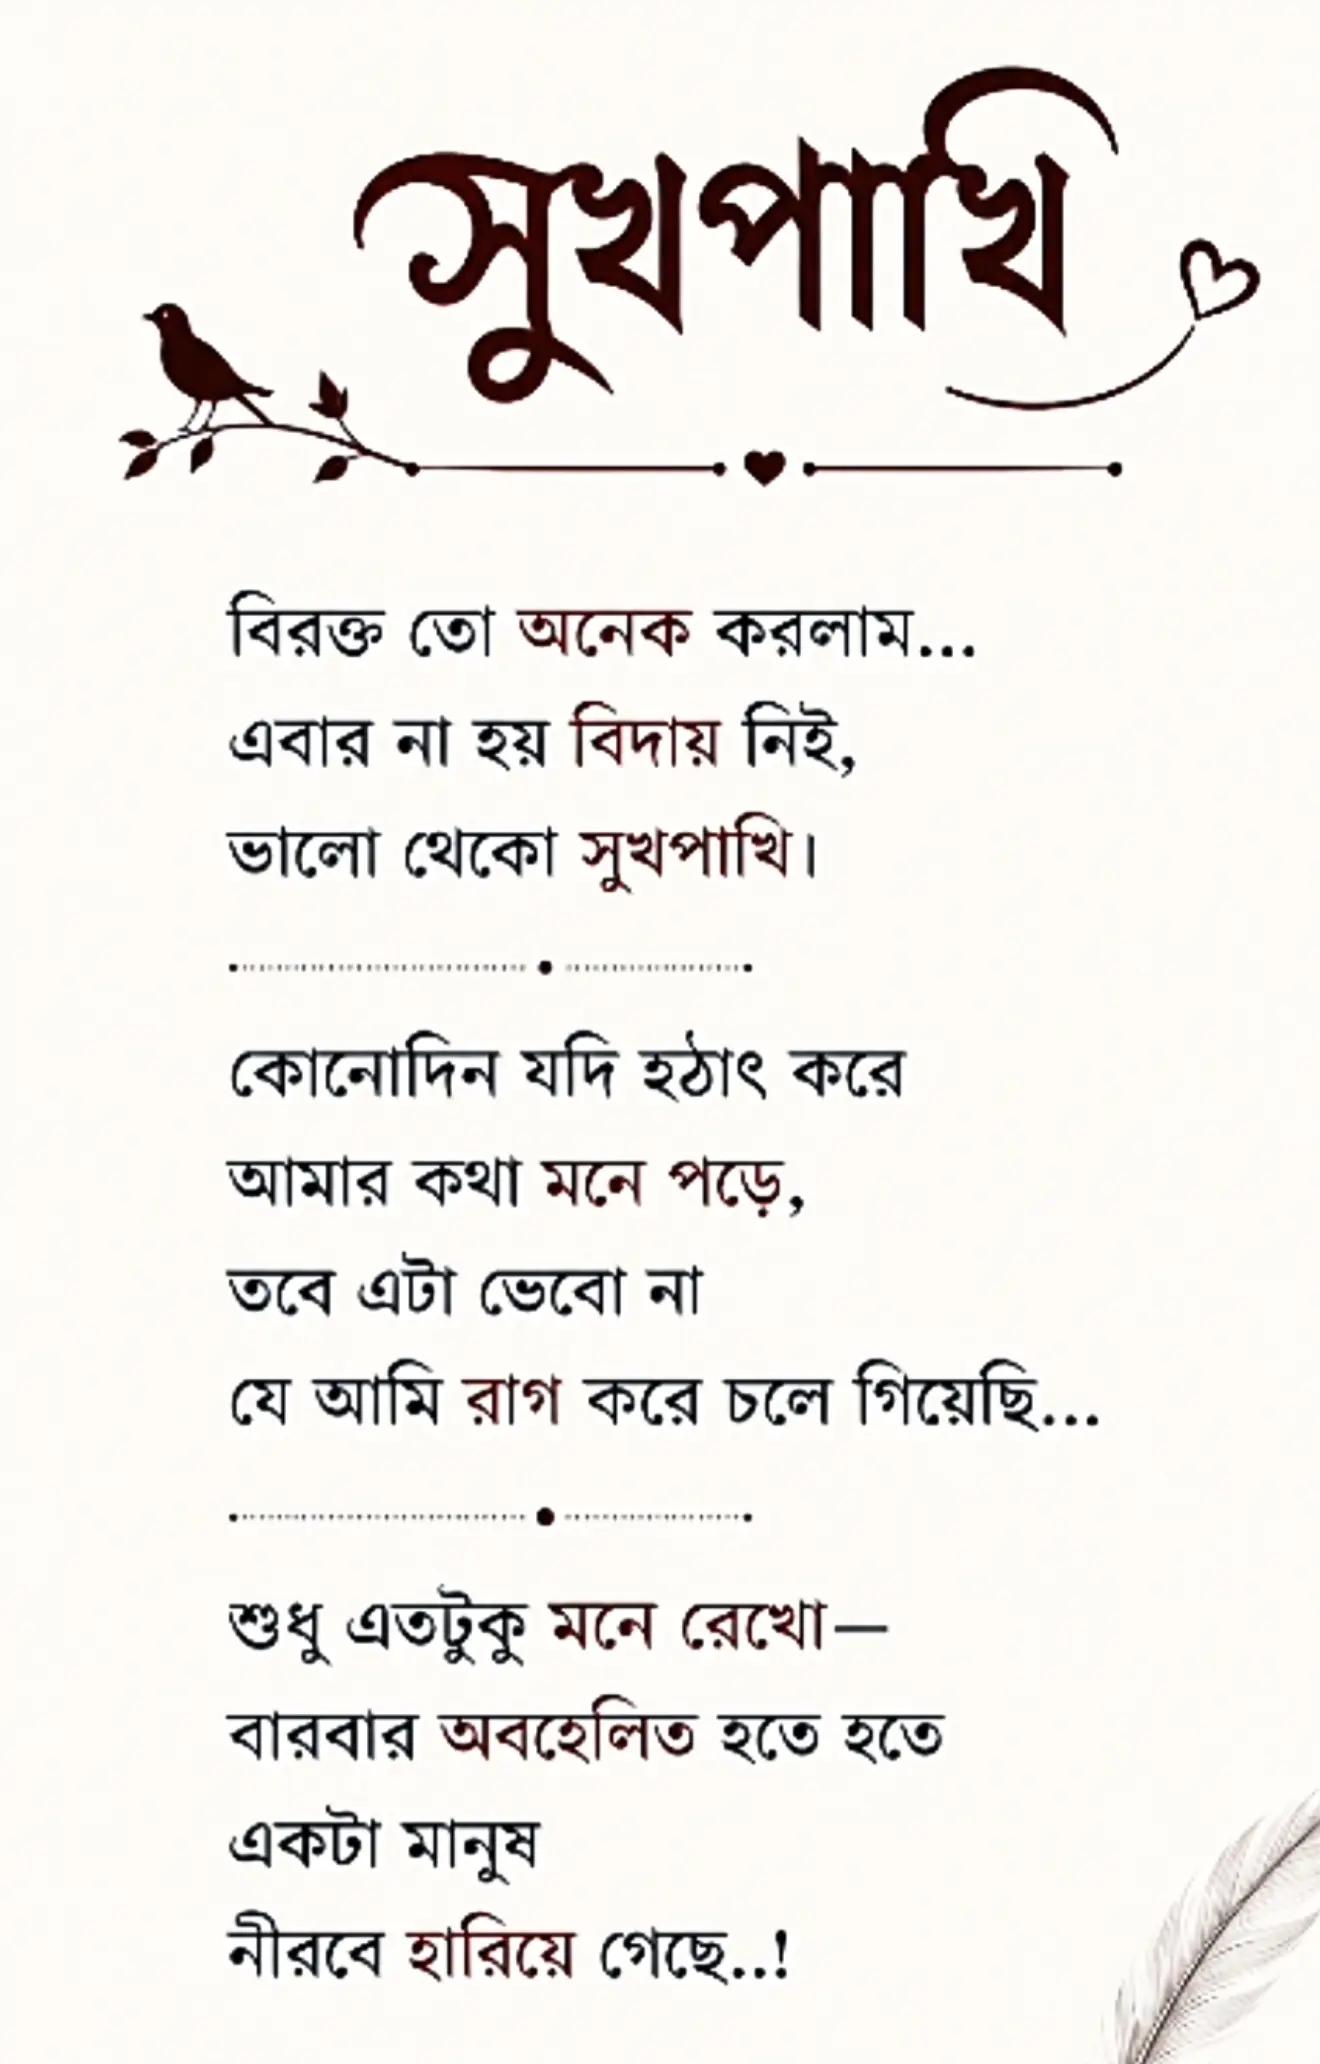 সুখপাখি
বিরক্ত তো অনেক করলাম...
এবার না হয় বিদায় নিই,
ভালো থেকো সুখপাখি।
কোনোদিন যদি হঠাৎ করে
আমার কথা মনে পড়ে,
তবে এটা ভেবো না
যে আমি রাগ করে চলে গিয়েছি...
শুধু এতটুকু মনে রেখো—
বারবার অবহেলিত হতে হতে
একটা মানুষ
নীরবে হারিয়ে গেছে..!